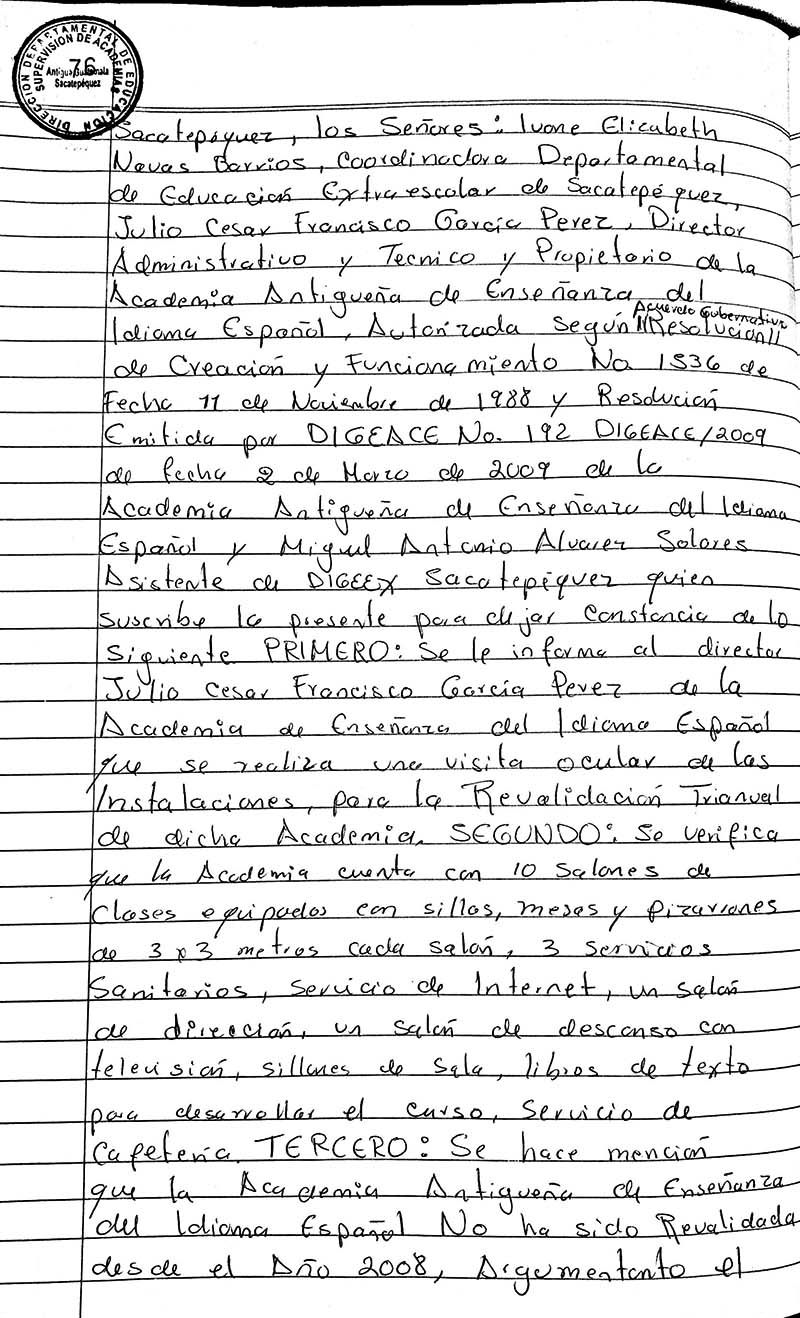 DIRECCION DEPARTAMENTAL DE EDUCACION
SUPERVISION DE ACADEMIAS
76
Antigua Guatemala
Sacatepéquez
Sacatepéquez, los Señores: Ivone Elizabeth
Navas Barrios, Coordinadora Departamental
de Educación Extraescolar de Sacatepéquez,
Julio Cesar Francisco García Perez, Director
Administrativo y Tecnico y Propietario de la
Academia Antigueña de Enseñanza del
Acuerdo Gubernativo
Idioma Español, Autorizada según //Resolución//
de Creación y Funcionamiento No. 1536 de
Fecha 11 de Noviembre de 1988 y Resolución
Emitida por DIGEACE No. 192 DIGEACE/2009
de fecha 2 de Marzo de 2009 de la
Academia Antigueña de Enseñanza del Idioma
Español y Miguel Antonio Alvarez Solares
Asistente de DIGEEX Sacatepéquez quien
suscribe la presente para dejar constancia de lo
siguiente PRIMERO: Se le informa al director
Julio Cesar Francisco García Perez de la
Academia de Enseñanza del Idioma Español
que se realiza una visita ocular de las
Instalaciones, para la Revalidación Trianual
de dicha Academia. SEGUNDO: Se verifica
que la Academia cuenta con 10 salones de
clases equipados con sillas, mesas y pizarrones
de 3 x 3 metros cada salón, 3 servicios
Sanitarios, servicio de Internet, un salón
de dirección, un salón de descanso con
televisión, sillones de sala, libros de texto
para desarrollar el curso, servicio de
Cafetería. TERCERO: Se hace mención
que la Academia Antigueña de Enseñanza
del Idioma Español No ha sido Revalidada
desde el Año 2008, Argumentanto el